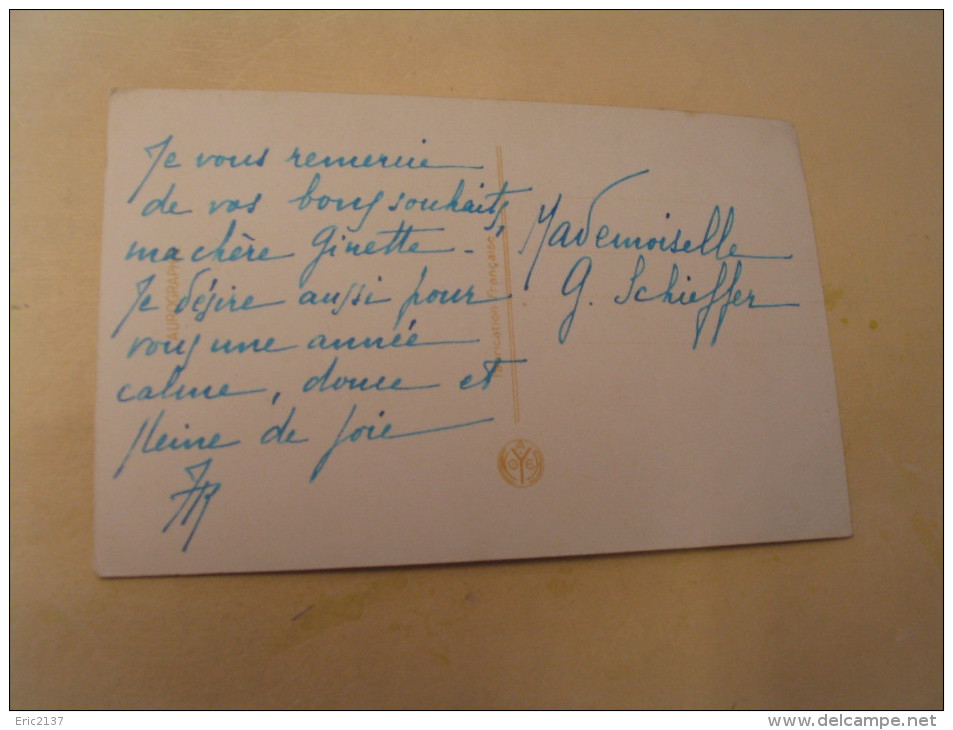 Je vous remercie
de vos bons souhaits,
ma chère Ginette -
Je désire aussi pour
vous une année
calme, douce et
pleine de joie
Mademoiselle
G. Schieffer
Fabrication Française
Eric2137
www.delcampe.net